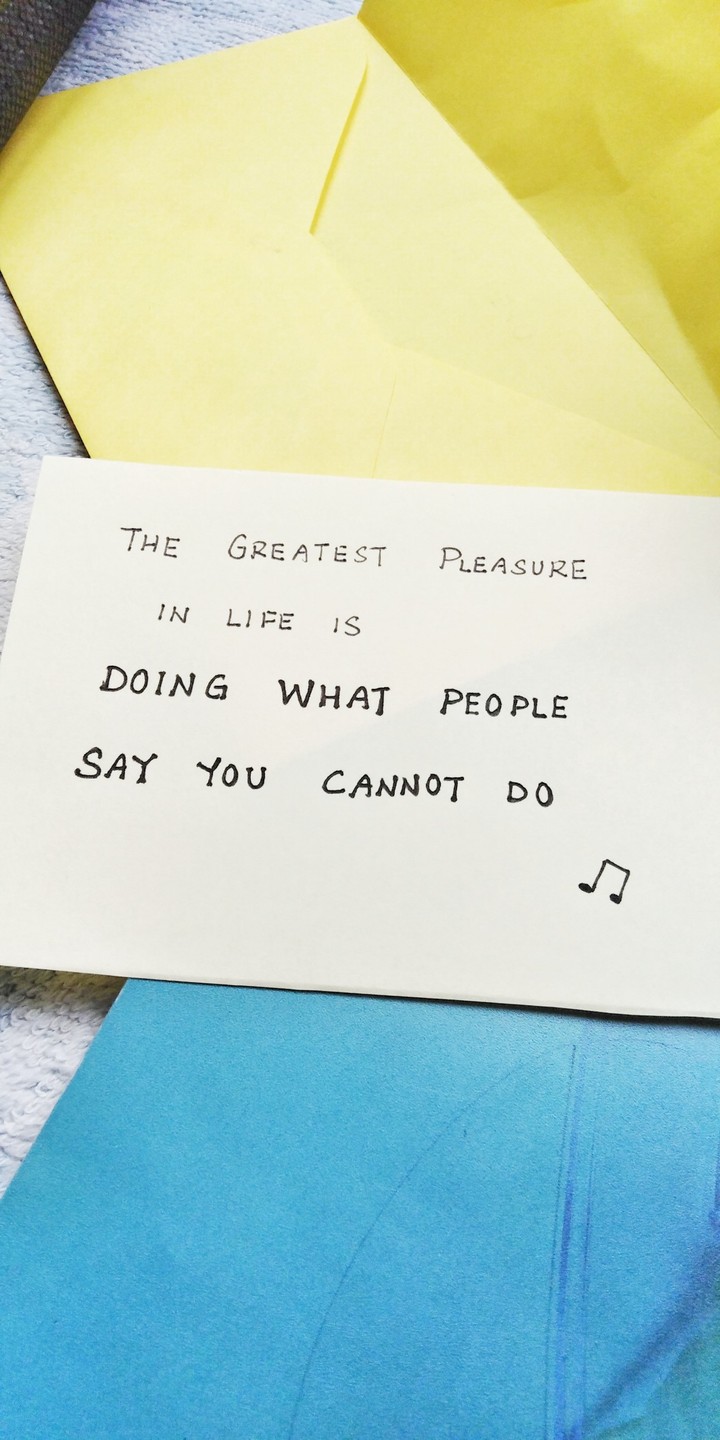 THE GREATEST PLEASURE
IN LIFE IS
DOING WHAT PEOPLE
SAY YOU CANNOT DO